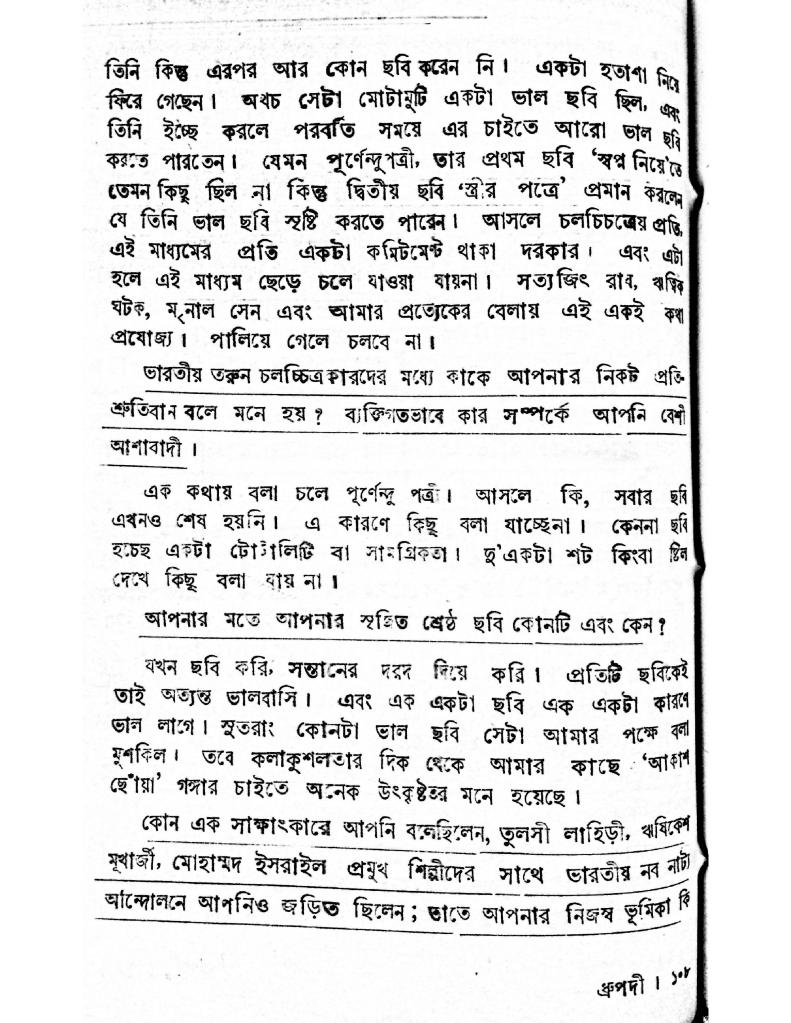 তিনি কিন্তু এরপর আর কোন ছবি করেন নি। একটা হতাশা নিয়ে
ফিরে গেছেন। অথচ সেটা মোটামুটি একটা ভাল ছবি ছিল, এবং
তিনি ইচ্ছে করলে পরবর্তি সময়ে এর চাইতে আরো ভাল ছবি
করতে পারতেন। যেমন পূর্ণেন্দুপত্রী, তার প্রথম ছবি ‘স্বপ্ন নিয়ে’তে
তেমন কিছু ছিল না কিন্তু দ্বিতীয় ছবি ‘স্ত্রীর পত্রে’ প্রমান করলেন
যে তিনি ভাল ছবি সৃষ্টি করতে পারেন। আসলে চলচিচত্রের প্রতি,
এই মাধ্যমের প্রতি একটা কমিটমেন্ট থাকা দরকার। এবং এটা
হলে এই মাধ্যম ছেড়ে চলে যাওয়া যায়না। সত্যজিৎ রায়, ঋত্বিক
ঘটক, মৃনাল সেন এবং আমার প্রত্যেকের বেলায় এই একই কথা
প্রযোজ্য। পালিয়ে গেলে চলবে না।
ভারতীয় তরুন চলচ্চিত্রকারদের মধ্যে কাকে আপনার নিকট প্রতি-
শ্রুতিবান বলে মনে হয়? ব্যক্তিগতভাবে কার সম্পর্কে আপনি বেশী
আশাবাদী।
এক কথায় বলা চলে পূর্ণেন্দু পত্রী। আসলে কি, সবার ছবি
এখনও শেষ হয়নি। এ কারণে কিছু বলা যাচ্ছেনা। কেননা ছবি
হচেছ একটা টোটালিটি বা সামগ্রিকতা। দু’একটা শট কিংবা ষ্টিল
দেখে কিছু বলা যায় না।
আপনার মতে আপনার সৃজিত শ্রেষ্ঠ ছবি কোনটি এবং কেন?
যখন ছবি করি, সন্তানের দরদ দিয়ে করি। প্রতিটি ছবিকেই
তাই অত্যন্ত ভালবাসি। এবং এক একটা ছবি এক একটা কারণে
ভাল লাগে। সুতরাং কোনটা ভাল ছবি সেটা আমার পক্ষে বলা
মুশকিল। তবে কলাকুশলতার দিক থেকে আমার কাছে ‘আকাশ
ছোঁয়া’ গঙ্গার চাইতে অনেক উৎকৃষ্টতর মনে হয়েছে।
কোন এক সাক্ষাৎকারে আপনি বলেছিলেন, তুলসী লাহিড়ী, ঋষিকেশ
মূখার্জী, মোহাম্মদ ইসরাইল প্রমুখ শিল্পীদের সাথে ভারতীয় নব নাট্য
আন্দোলনে আপনিও জড়িত ছিলেন; তাতে আপনার নিজস্ব ভূমিকা কি
ধ্রুপদী। ১০৮